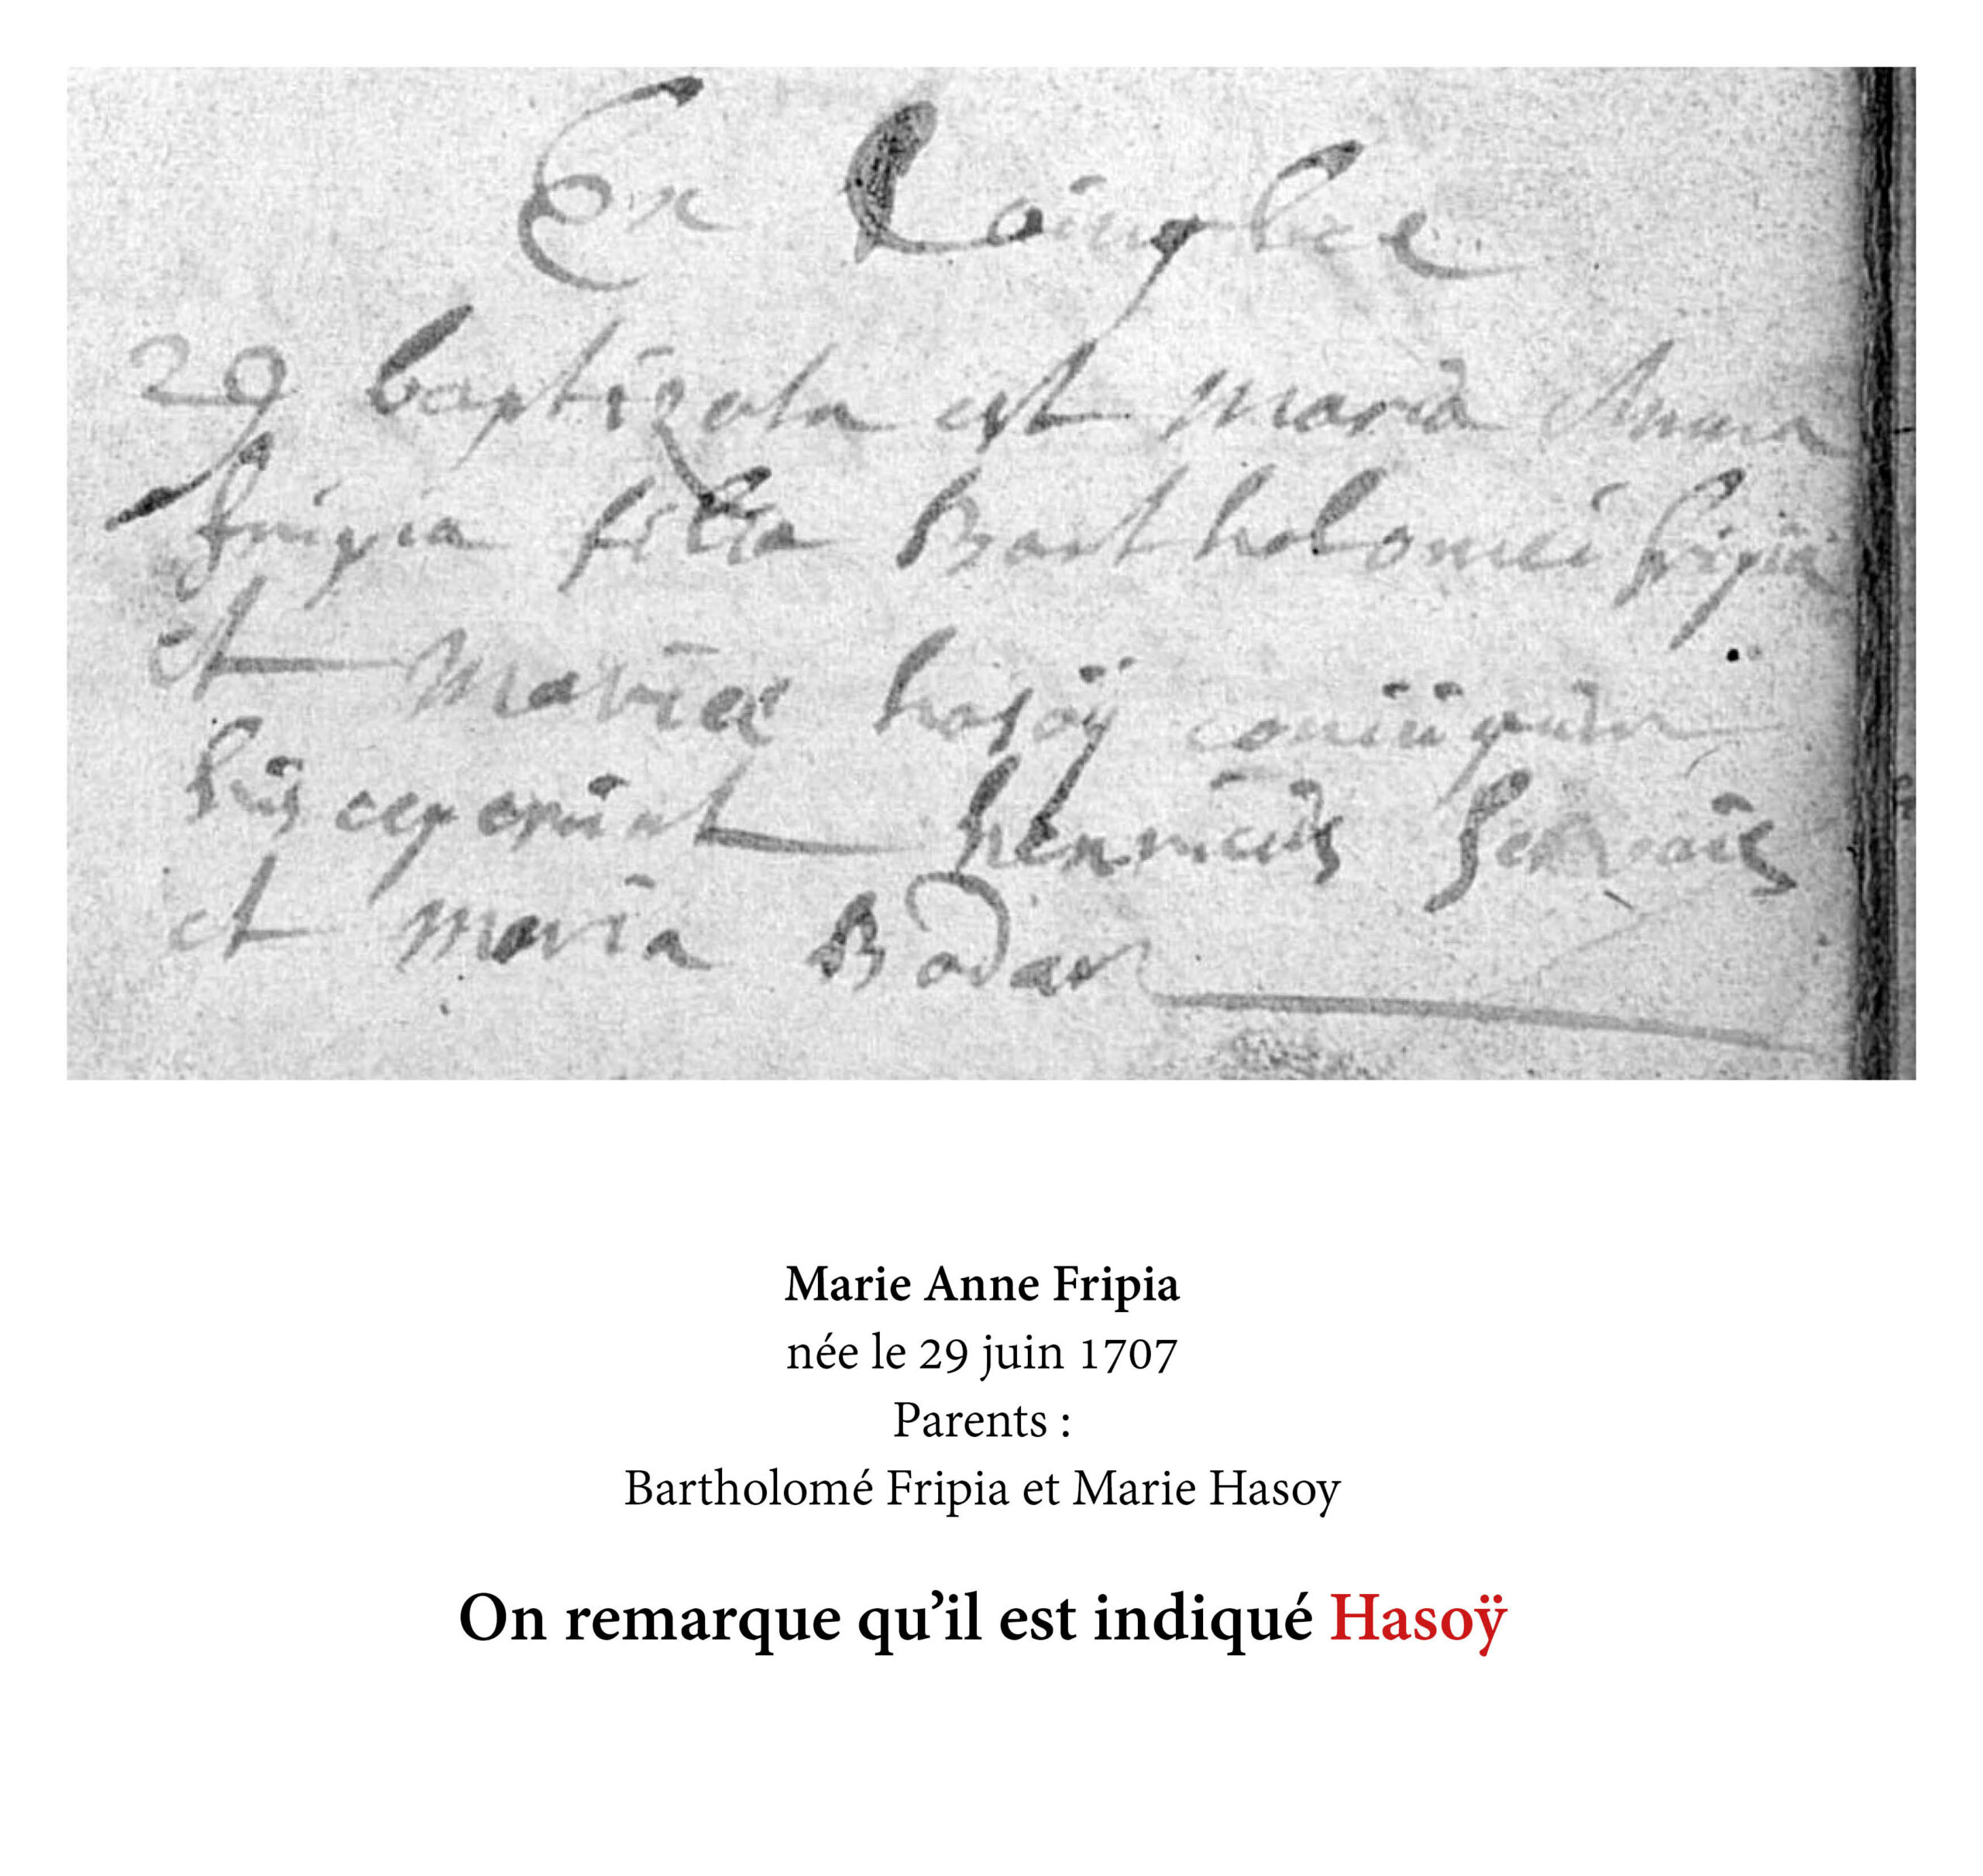 Ex
29 baptizata est maria Anna
fripia filia Bartholomei fripia
et Mariae hasoÿ coniugum
susceperunt henricus Gervais
et maria Bodar
Marie Anne Fripia
née le 29 juin 1707
Parents :
Bartholomé Fripia et Marie Hasoy
On remarque qu’il est indiqué Hasoÿ